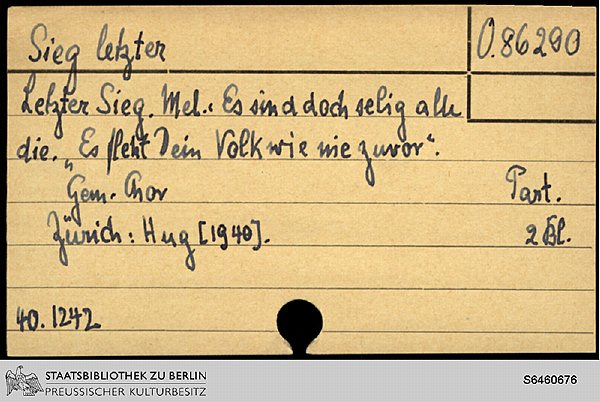 Sieg letzter
O.86290
Letzter Sieg. Mel.: Es sind doch selig alle
die. „Es fleht Dein Volk wie nie zuvor“.
Gem. Chor
Part.
Zürich: Hug [1940].
2 Bl.
40.1242
STAATSBIBLIOTHEK ZU BERLIN
PREUSSISCHER KULTURBESITZ
S6460676